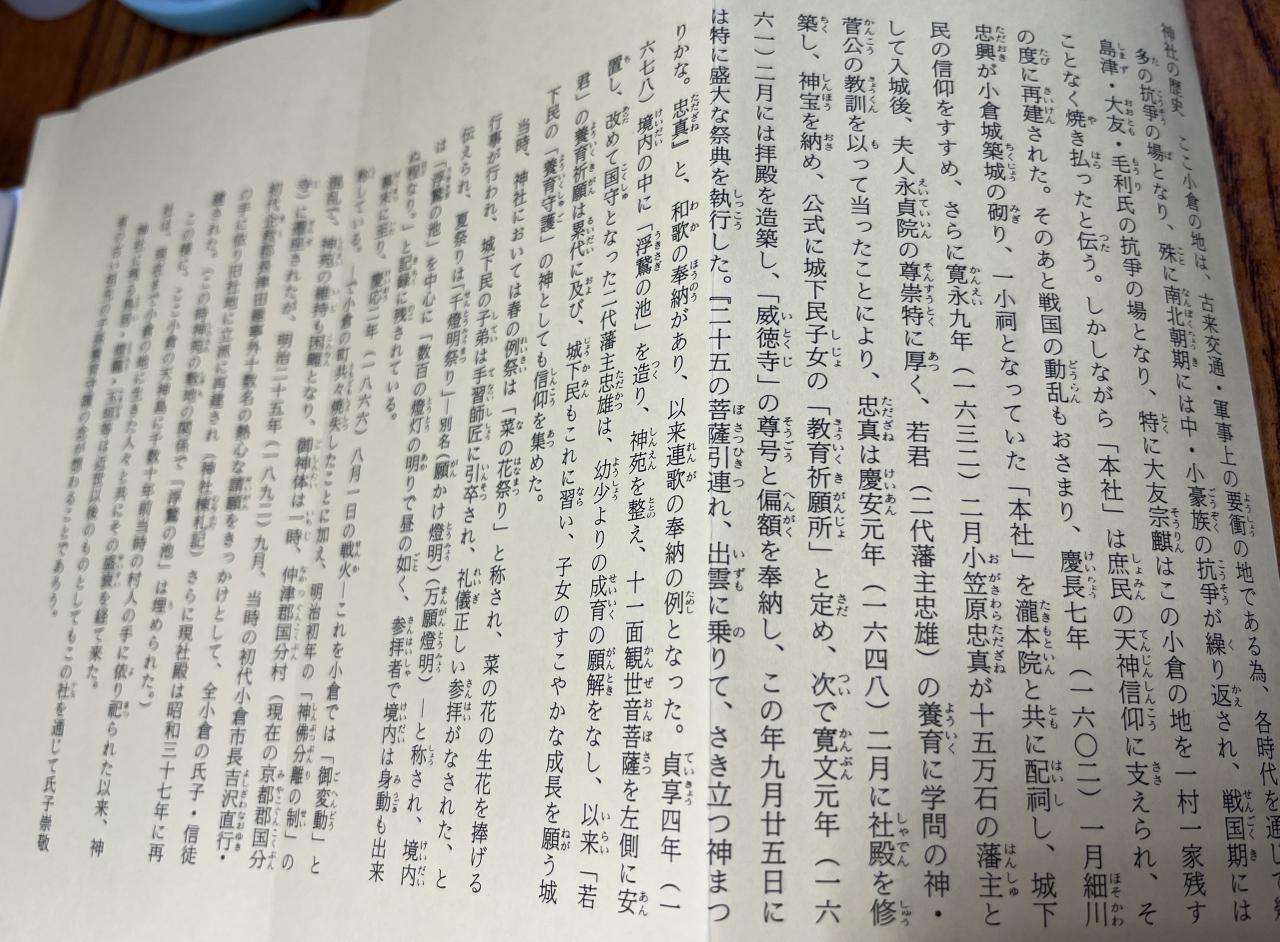 神社の歴史　ここ小倉の地は、古来交通・軍事上の要衝の地である為、各時代を通じて
多の抗争の場となり、殊に南北朝期には中・小豪族の抗争が繰り返され、戦国期には
島津・大友・毛利氏の抗争の場となり、特に大友宗麒はこの小倉の地を一村一家残す
ことなく焼き払ったと伝う。しかしながら「本社」は庶民の天神信仰に支えられ、そ
の度に再建された。そのあと戦国の動乱もおさまり、慶長七年（一六〇二）一月細川
忠興が小倉城築城の砌り、一小祠となっていた「本社」を瀧本院と共に配祠し、城下
民の信仰をすすめ、さらに寛永九年（一六三二）二月小笠原忠真が十五万石の藩主と
して入城後、夫人永貞院の尊崇特に厚く、若君（二代藩主忠雄）の養育に学問の神・
菅公の教訓を以って当ったことにより、忠真は慶安元年（一六四八）二月に社殿を修
築し、神宝を納め、公式に城下民子女の「教育祈願所」と定め、次で寛文元年（一六
六一）二月には拝殿を造築し、「威徳寺」の尊号と偏額を奉納し、この年九月廿五日に
は特に盛大な祭典を執行した。『二十五の菩薩引連れ、出雲に乗りて、さき立つ神まつ
りかな。忠真』と、和歌の奉納があり、以来連歌の奉納の例となった。貞享四年（一
六七八）境内の中に「浮鷺の池」を造り、神苑を整え、十一面観世音菩薩を左側に安
置し、改めて国守となった二代藩主忠雄は、幼少よりの成育の願解をなし、以来「若
君」の養育祈願は累代に及び、城下民もこれに習い、子女のすこやかな成長を願う城
下民の「養育守護」の神としても信仰を集めた。
当時、神社においては春の例祭は「菜の花祭り」と称され、菜の花の生花を捧げる
行事が行われ、城下民の子弟は手習師匠に引卒され、礼儀正しい参拝がなされた、と
伝えられ、夏祭りは「千燈明祭り」―別名（願かけ燈明）（万願燈明）―と称され、境内
は「浮鷺の池」を中心に「数百の燈灯の明りで昼の如く、参拝者で境内は身動も出来
ぬ程なり。」と記録に残されている。
幕末に至り、慶応二年（一八六六）八月一日の戦火―これを小倉では「御変動」と
称している。―で小倉の町共々焼失したことに加え、明治初年の「神佛分離の制」の
混乱で、神苑の維持も困難となり、御神体は一時、仲津郡国分村（現在の京都郡国分
寺）に遷座されたが、明治二十五年（一八九二）九月、当時の初代小倉市長吉沢直行・
初代企救郡長津田維寧外十数名の熱心な請願をきっかけとして、全小倉の氏子・信徒
の手に依り旧社地に立派に再建され（神社棟札記）さらに現社殿は昭和三十七年に再
建された。（この時神苑の敷地の関係で「浮鷺の池」は埋められた。）
この様に、ここ小倉の天神島に千数十年前当時の村人の手に依り祀られた以来、神
社は、現在まで小倉の地に生きた人々と共にその盛衰を経て来た。
神社に残る鳥居・燈籠・玉垣等は近世以後のものとしてもこの社を通じて氏子崇敬